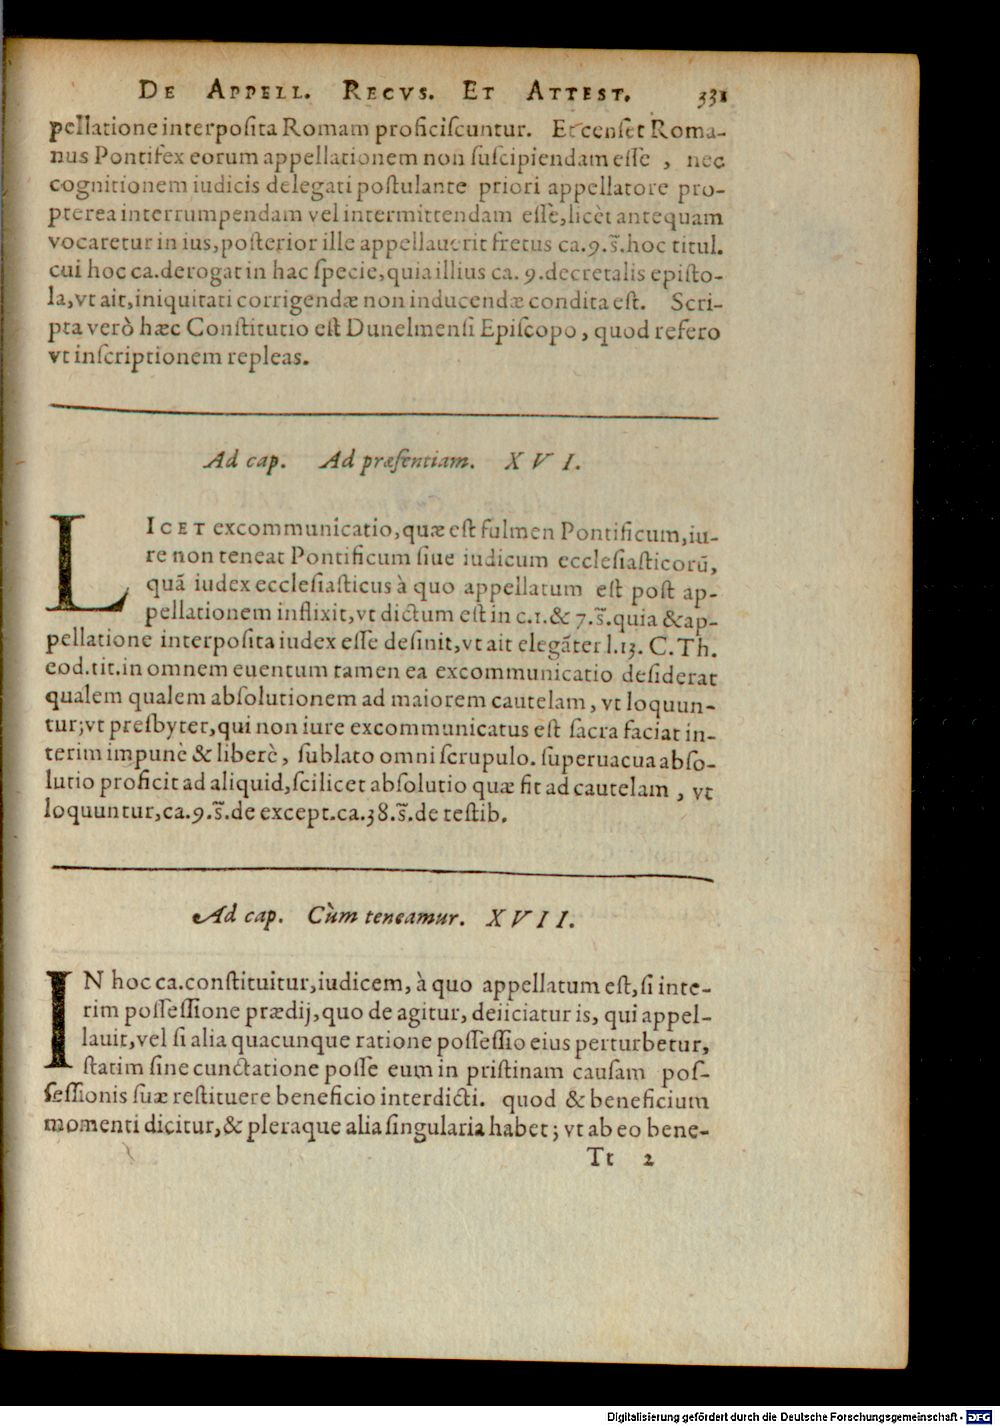 DE APPELL. RECVS. ET ATTEST. 331
pellatione interposita Romam proficiscuntur. Et censet Roma-
nus Pontifex eorum appellationem non suscipiendam esse, nec
cognitionem iudicis delegati postulante priori appellatore pro-
pterea interrumpendam vel intermittendam esse, licèt antequam
vocaretur in ius, posterior ille appellauerit fretus ca. 9. s̃. hoc titul.
cui hoc ca. derogat in hac specie, quia illius ca. 9. decretalis episto-
la, vt ait, iniquitati corrigendæ non inducendæ condita est. Scri-
pta verò hæc Constitutio est Dunelmensi Episcopo, quod refero
vt inscriptionem repleas.
Ad cap. Ad præsentiam. XVI.
LICET excommunicatio, quæ est fulmen Pontificum, iu-
re non teneat Pontificum siue iudicum ecclesiasticorũ,
quã iudex ecclesiasticus à quo appellatum est post ap-
pellationem inflixit, vt dictum est in c. 1. & 7. s̃. quia & ap-
pellatione interposita iudex esse desinit, vt ait elegãter l. 13. C. Th.
eod. tit. in omnem euentum tamen ea excommunicatio desiderat
qualem qualem absolutionem ad maiorem cautelam, vt loquun-
tur; vt presbyter, qui non iure excommunicatus est sacra faciat in-
terim impunè & liberè, sublato omni scrupulo. superuacua abso-
lutio proficit ad aliquid, scilicet absolutio quæ fit ad cautelam, vt
loquuntur, ca. 9. s̃. de except. ca. 38. s̃. de testib.
Ad cap. Cùm teneamur. XVII.
IN hoc ca. constituitur, iudicem, à quo appellatum est, si inte-
rim possessione prædij, quo de agitur, deiiciatur is, qui appel-
lauit, vel si alia quacunque ratione possessio eius perturbetur,
statim sine cunctatione posse eum in pristinam causam pos-
sessionis suæ restituere beneficio interdicti. quod & beneficium
momenti dicitur, & pleraque alia singularia habet; vt ab eo bene-
Tt 2
Digitalisierung gefördert durch die Deutsche Forschungsgemeinschaft - DFG